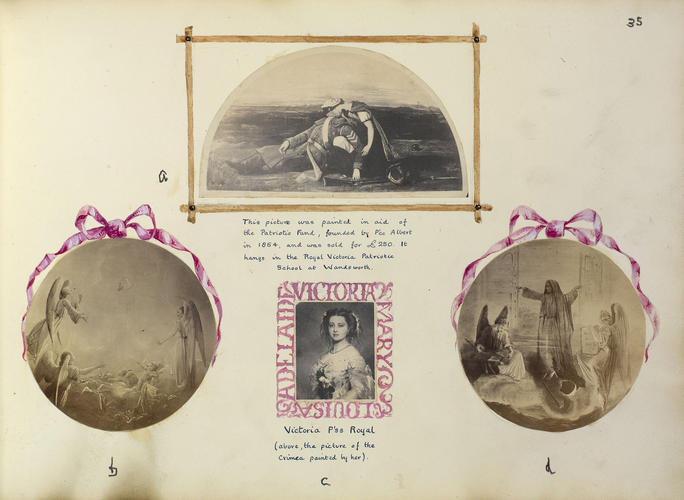 35
a
This picture was painted in aid of
the Patriotic Fund, founded by P'ce Albert
in 1854, and was sold for £250. It
hangs in the Royal Victoria Patriotic
School at Wandsworth.
VICTORIA
ADELAIDE
MARY
LOUISA
Victoria P'ss Royal
(above, the picture of the
Crimea painted by her).
b
c
d